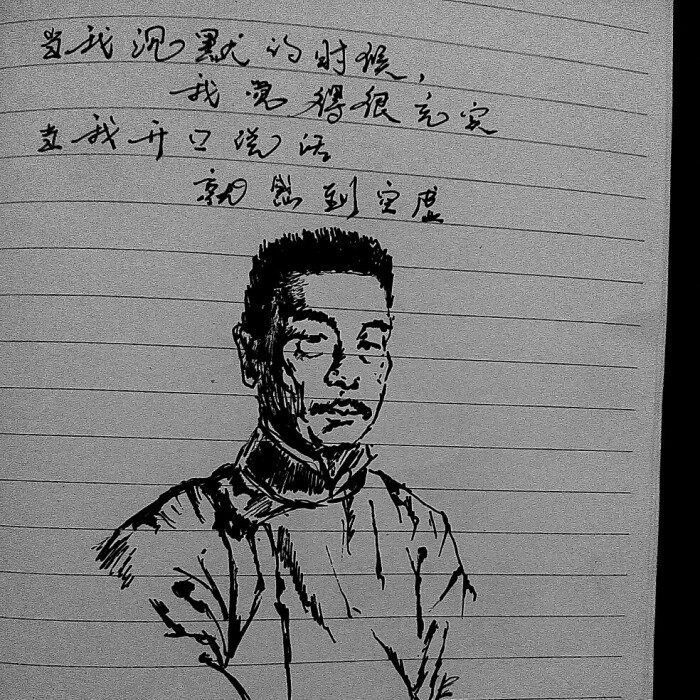 当我沉默的时候，
我觉得很充实
当我开口说话
就感到空虚